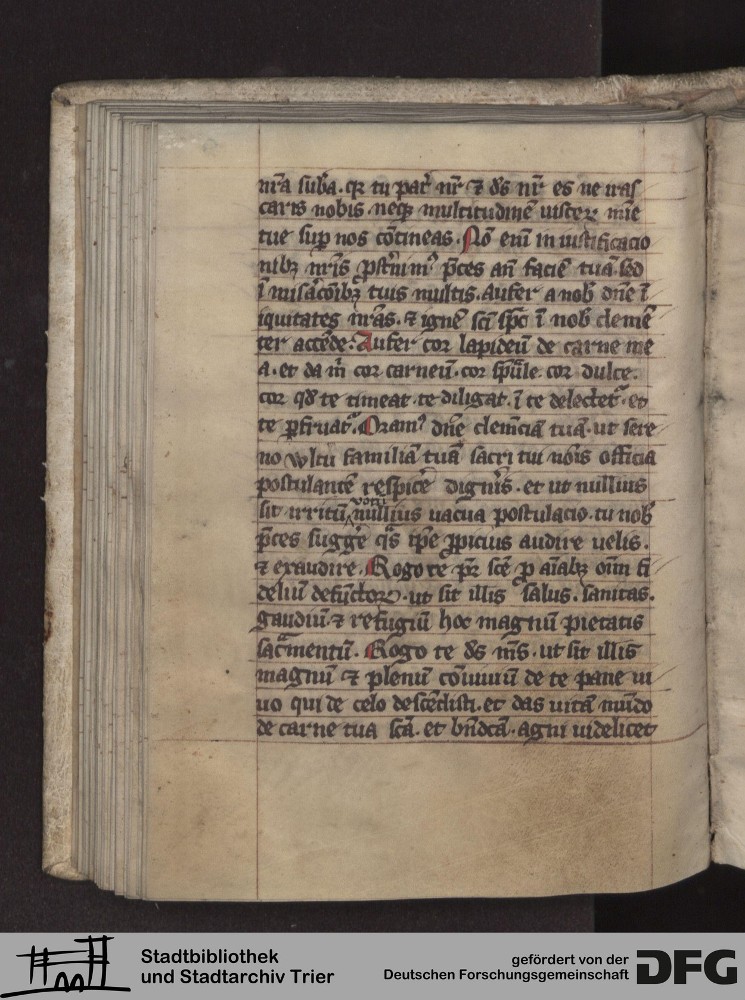 nr̄a sūba. qꝛ tu pat̄ nr̄ ⁊ d̄s nr̄ es ne iras
caris nobis. neqꝫ multitudinē uisceꝝ mīe
tue sup̄ nos cōtineas. Nō enī in iustificacio
nibꝫ nr̄is p̄sternimꝰ p̄ces an̄ faciē tuā. sed
ī misac̄oībꝫ tuis multis. Aufer a nob̄ dn̄e ī
iquitates nr̄as. ⁊ ignē sc̄i sp̄c ī nob̄ clemē
ter accēde. Aufer cor lapideū de carne me
a. et da m̄ cor carneū. cor sp̄uāle. cor dulce.
cor qd̄ te timeat. te diligat. ī te delectet᷑. et
te p̄fruat᷑. Oramꝰ dn̄e clemēciā tuā. ut sere
no wltu familiā tuā sacri tui nōis officia
postulantē respice᷑ digneris. et ut nullius
sit irritū votū nullius uacua postulacio. tu nob̄
p̄ces sugge᷑ q̄s ip̄e ꝓpicius audire uelis.
⁊ exaudire. Rogo te p̄r sc̄e ꝓ aīabꝫ oīm fi
deliū defūctoꝝ. ut sit illis salus. sanitas.
gaudiū. ⁊ refugiū hoc magnū pietatis
sac̄mentū. Rogo te d̄s m̄s. ut sit illis
magnū ⁊ plenū cōuiuiū de te pane ui
uo qui de celo descēdisti. et das uitā mūdo
de carne tua sc̄a. et bn̄dc̄a. agni uidelicet
Stadtbibliothek
und Stadtarchiv Trier
gefördert von der
Deutschen Forschungsgemeinschaft
DFG